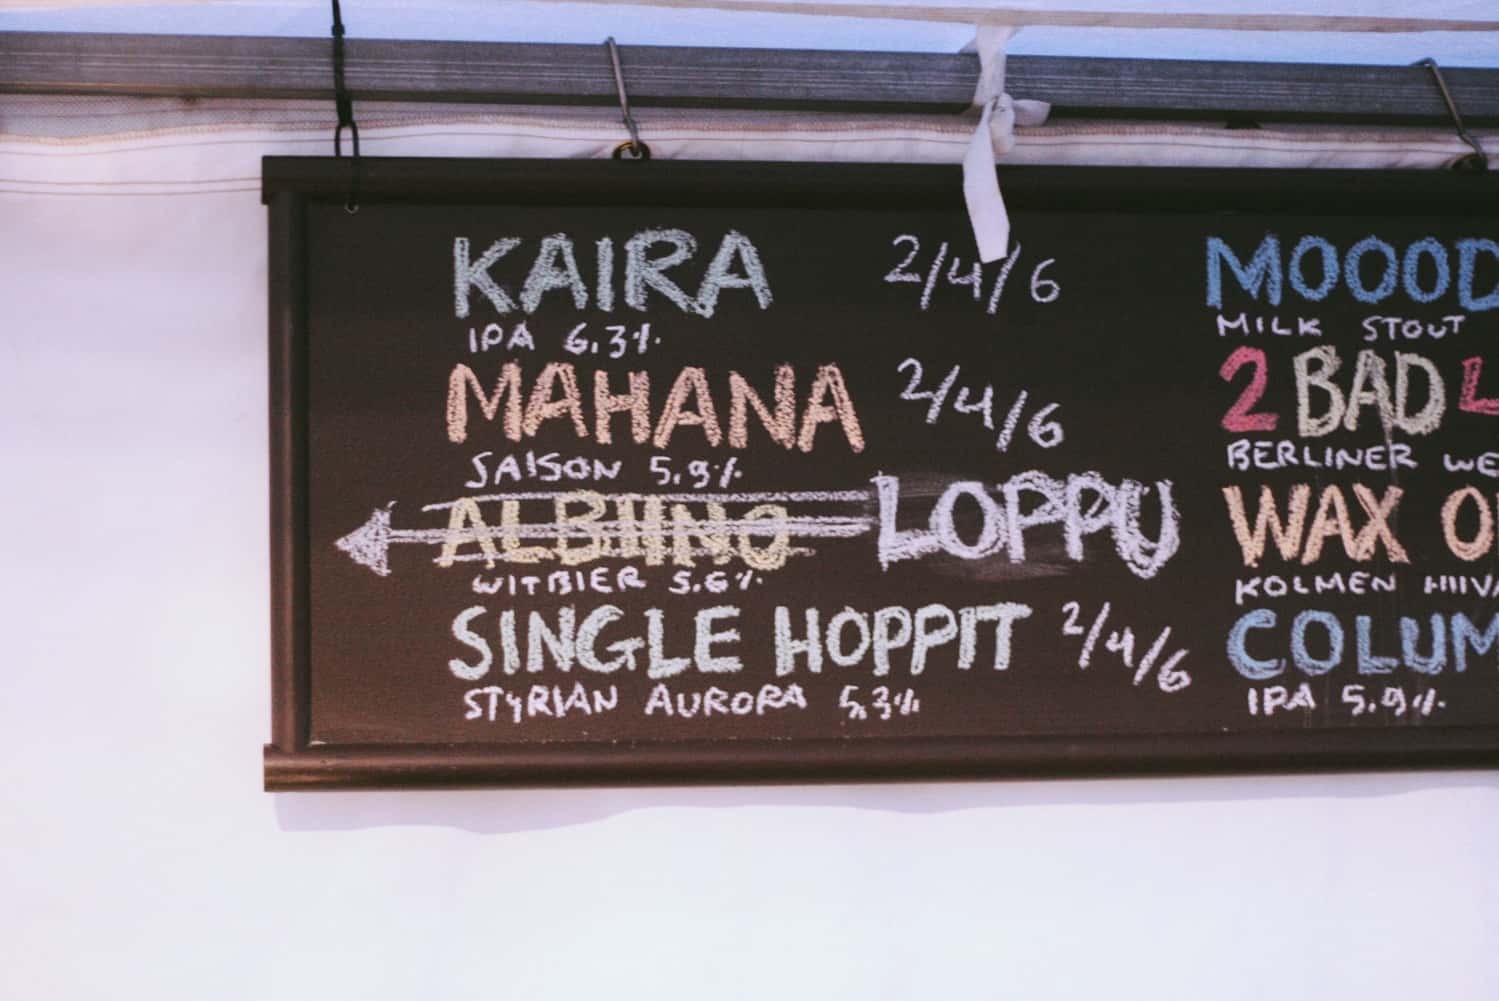 KAIRA 2/4/6
IPA 6.3%
MAHANA 2/4/6
SAISON 5.9%
ALBIINO LOPPU
WITBIER 5.6%
SINGLE HOPPIT 2/4/6
STYRIAN AURORA 5.3%
MOOOD
MILK STOUT
2 BAD L
BERLINER WE
WAX O
KOLMEN HIIVA
COLUM
IPA 5.9%